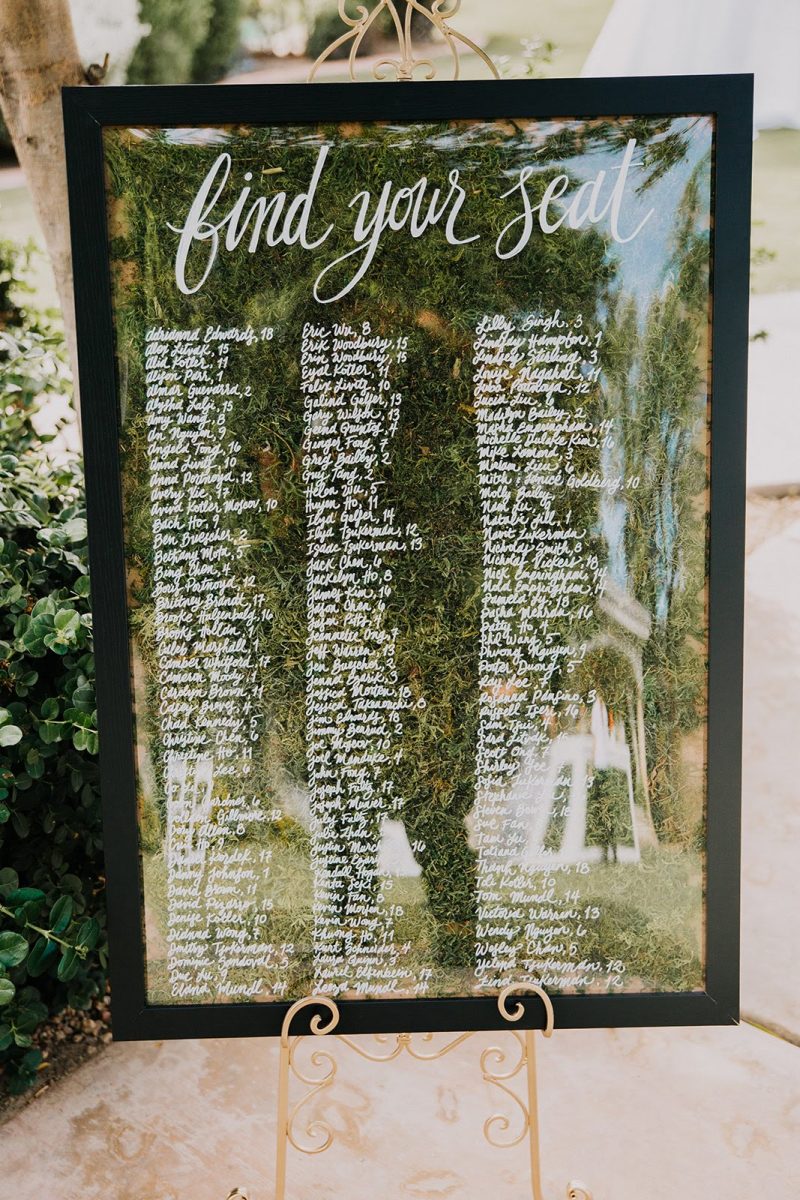 find your seat
Adrianna Edwards, 18
Alex Levak, 15
Alia Kotler, 11
Alyson Parr, 1
Amar Guevarra, 2
Alyssa Lalji, 15
Amy Wang, 8
An Nguyen, 9
Angela Tong, 16
Anna Livitz, 10
Anna Portnoya, 12
Avery Xie, 17
Arvid Kotler Mojeov, 10
Bach Ho, 9
Ben Buescher, 2
Bethany Mota, 5
Bing Chen, 4
Boris Portnoyd, 12
Brittney Brandt, 17
Brooke Halzenberg, 16
Brooks Hollan, 1
Caleb Marshall, 1
Camber Whitford, 17
Cameron Moody, 1
Carolyn Brown, 11
Casey Brovez, 4
Chad Kennedy, 5
Christine Chen, 6
Christine Ho, 11
Lee, 6
Gardner, 6
Gillmore, 12
Doug Allen, 8
Ho, 9
17
Danny Johnson, 1
David Brown, 11
David Pizarro, 15
Denise Kotler, 10
Dianna Wong, 7
Dmitry Tsukerman, 12
Dominic Sandoval, 5
Duc Lu, 9
Elana Mundl, 14
Eric Wu, 8
Erik Woodbury, 15
Erin Woodbury, 15
Eyal Kotler, 11
Felix Livitz, 10
Galina Gelfer, 13
Gary Wilson, 13
Geena Quintos, 4
Ginger Fong, 7
Greg Bailey, 2
Guy Tang, 2
Helen Wu, 5
Huyen Ho, 11
Ilya Gelfer, 14
Ilya Tsukerman, 12
Isaac Tsukerman, 13
Jack Chen, 6
Jackelyn Ho, 8
James Kim, 16
Jason Chen, 6
Jason Pitts, 4
Jeannette Ong, 7
Jeff Warren, 13
Jen Buescher, 2
Jenna Ezarik, 3
Jessica Morten, 18
Jessica Takenouchi, 8
Jim Edwards, 18
Jimmy Bernud, 2
Joe Mojeov, 10
Joel Mandyke, 4
John Fong, 7
Joseph Fultz, 17
Joseph Meuier, 17
July Fultz, 17
Julie Zhan
Justin March 16
Justine Ezarik
Kendall Hogan
Kenta Seki, 15
Kevin Fan, 8
Kevin Morsen, 18
Kevin Wong, 7
Khuong Ho, 11
Kurt Schneider, 4
Laura Quinn, 3
Laurel Elfenbein, 17
Lenza Mundl, 14
Lilly Singh, 3
Lindsay Hampton, 1
Lindsey Stirling, 3
Magahal, 11
Portnoya, 12
Lucia Liu, 6
Madilyn Bailey, 2
Masha Emeringham, 14
Michelle Huleka Kim, 16
Mike Lomond, 3
Miriam Lieu, 6
Mitch & Janice Goldberg, 10
Molly Bailey,
Nam Lu,
Natalie Jill, 1
Navit Zukerman
Nicholas Smith, 8
Nicholas Vickers, 18
Nick Emeringham, 14
Emeringham, 14
Pamela 18
Pasha Mehrada, 16
Patty Ho, 4
Phil Wang, 5
Phuong Nguyen, 9
Peter Duong, 5
Ray Lee, 7
Rosanna Pansino, 3
Russell Tsen, 16
Sam Tsui, 4
Scott Ong, 7
Shirley Lee
Tsukerman
Stephanie
Steven 18
Sue Fan,
Tam Lu,
Tatiana
Thanh Nguyen, 18
Tal Kotler, 10
Tom Mundl, 14
Victoria Warren, 13
Wendy Nguyen, 6
Wesley Chan, 5
Yelena Tsukerman, 12
Zina Tsukerman, 12